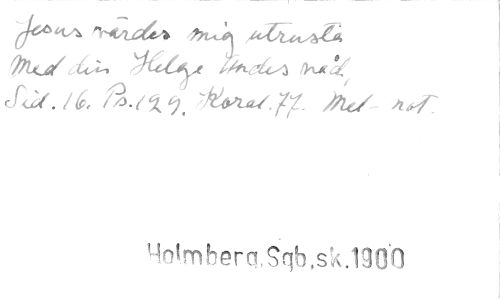 Jesus värdes mig utrusta
Med din Helge Andes nåd,
Sid. 16. Ps. 129. Koral. 77. Mel- not.
Holmberg, Sgb, sk. 1900